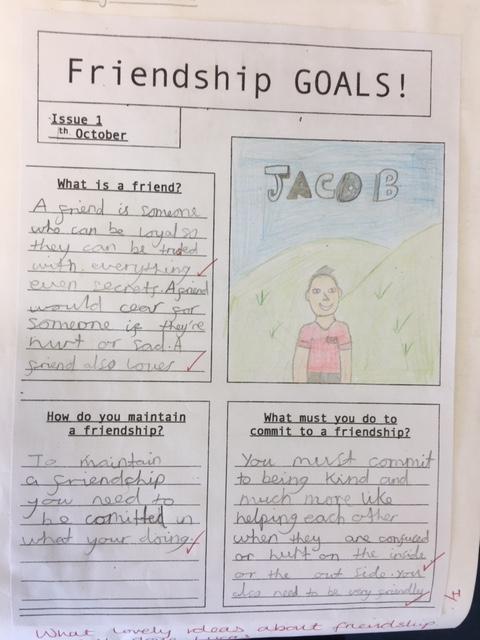 Friendship GOALS!
Issue 1
th October
JACOB
What is a friend?
A friend is someone
who can be loyal so
they can be trusted
with everything
even secrets. A friend
would cear for
someone if they're
hurt or sad. A
friend also loves
How do you maintain
a friendship?
To maintain
a friendship
you need to
be comitted in
what your doing.
What must you do to
commit to a friendship?
You must commit
to being kind and
much more like
helping each other
when they are confused
or hurt on the inside
or the out side. You
also need to be very friendly
What lovely ideas about friendship